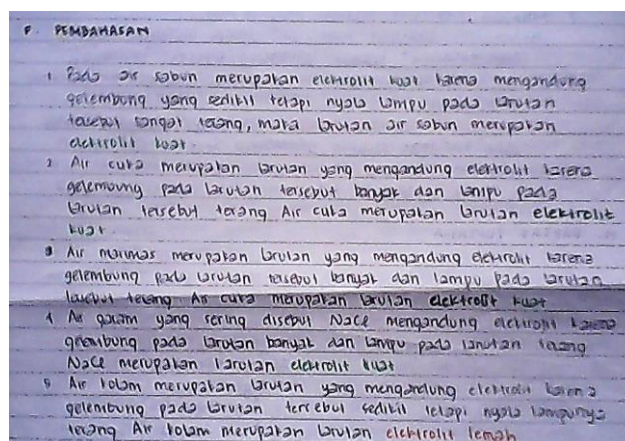 F. PEMBAHASAN
1 Pada air sabun merupakan elektrolit kuat karena mengandung
gelembung yang sedikit tetapi nyala lampu pada larutan
tersebut sangat terang, maka larutan air sabun merupakan
elektrolit kuat.
2 Air cuka merupakan larutan yang mengandung elektrolit karena
gelembung pada larutan tersebut banyak dan lampu pada
larutan tersebut terang Air cuka merupakan larutan elektrolit
kuat.
3 Air marimas merupakan larutan yang mengandung elektrolit karena
gelembung pada larutan tersebut banyak dan lampu pada larutan
tersebut terang Air cuka merupakan larutan elektrolit kuat
4 Air garam yang sering disebut NaCl mengandung elektrolit karena
gelembung pada larutan banyak dan lampu pada larutan terang
NaCl merupakan larutan elektrolit kuat
5 Air kolam merupakan larutan yang mengandung elektrolit karena
gelembung pada larutan tersebut sedikit tetapi nyala lampunya
terang Air kolam merupakan larutan elektrolit lemah